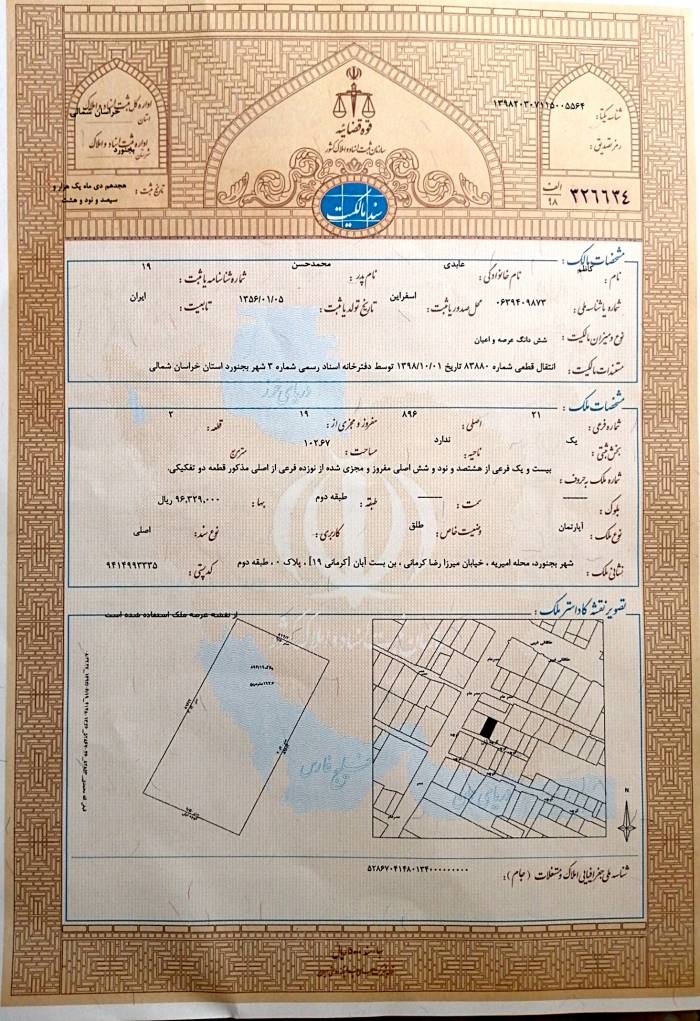 قوه قضائیه
سازمان ثبت اسناد و املاک کشور
سند مالکیت
اداره کل ثبت اسناد و املاک
استان خراسان شمالی
اداره ثبت اسناد و املاک
شهرستان بجنورد
تاریخ ثبت : هجدهم دی ماه یک هزار و سیصد و نود و هشت
شناسه یکتا : ۱۳۹۸۲۰۳۰۷۱۱۵۰۰۵۵۶۴
رمز تصدیق :
۳۲۶۶۳۴ الف ۹۸
مشخصات مالک :
نام : کاظم نام خانوادگی : عابدی نام پدر : محمدحسن شماره شناسنامه یا ثبت : ۱۹
شماره یا شناسه ملی : ۰۶۳۹۴۰۹۸۷۳ محل صدور یا ثبت : اسفراین تاریخ تولد یا ثبت : ۱۳۵۶/۰۱/۰۵ تابعیت : ایران
نوع و میزان مالکیت : شش دانگ عرصه و اعیان
مستندات مالکیت : انتقال قطعی شماره ۸۳۸۸۰ تاریخ ۱۳۹۸/۱۰/۰۱ توسط دفترخانه اسناد رسمی شماره ۳ شهر بجنورد استان خراسان شمالی
مشخصات ملک :
شماره فرعی : ۲۱ اصلی : ۸۹۶ مفروز و مجزی از : ۱۹ قطعه : ۲
بخش ثبتی : یک ناحیه : ندارد مساحت : ۱۰۲.۶۷ مترمربع
شماره ملک به حروف : بیست و یک فرعی از هشتصد و نود و شش اصلی مفروز و مجزی شده از نوزده فرعی از اصلی مذکور قطعه دو تفکیکی.
بلوک : ـــــ سمت : ـــــ طبقه : طبقه دوم بها : ۹۶,۳۲۹,۰۰۰ ریال
نوع ملک : آپارتمان وضعیت خاص : طلق کاربری : نوع سند : اصلی
نشانی ملک : شهر بجنورد، محله امیریه ، خیابان میرزا رضا کرمانی ، بن بست آبان [کرمانی ۱۹] ، پلاک ۰ ، طبقه دوم کدپستی : ۹۴۱۴۹۹۳۳۳۵
تصویر نقشه کاداستر ملک :
از نقشه عرصه ملک استفاده شده است
دریای خزر
خلیج فارس
دریای عمان
N
شناسه ملی جغرافیایی املاک و مستغلات (جام) : ۵۲۸۶۷۰۴۱۴۸۰۱۳۴۰۰۰۰۰۰۰۰۰